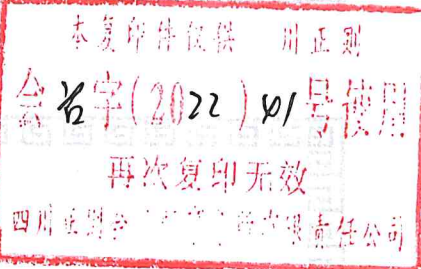 本复印件仅供 川正则
会 字(2022)41号使用
再次复印无效
四川正则会 责任公司